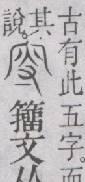 古有此五字。而
其
說。
籀文从